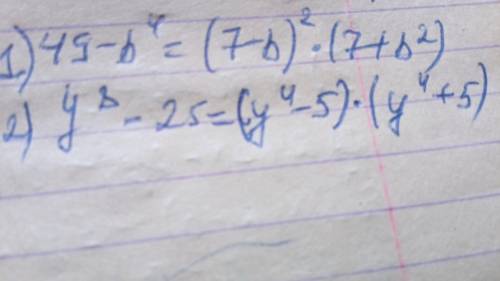 1.) 49-b⁴=(7-b)²·(7+b²)
2) y⁸-25=(y⁴-5)·(y⁴+5)